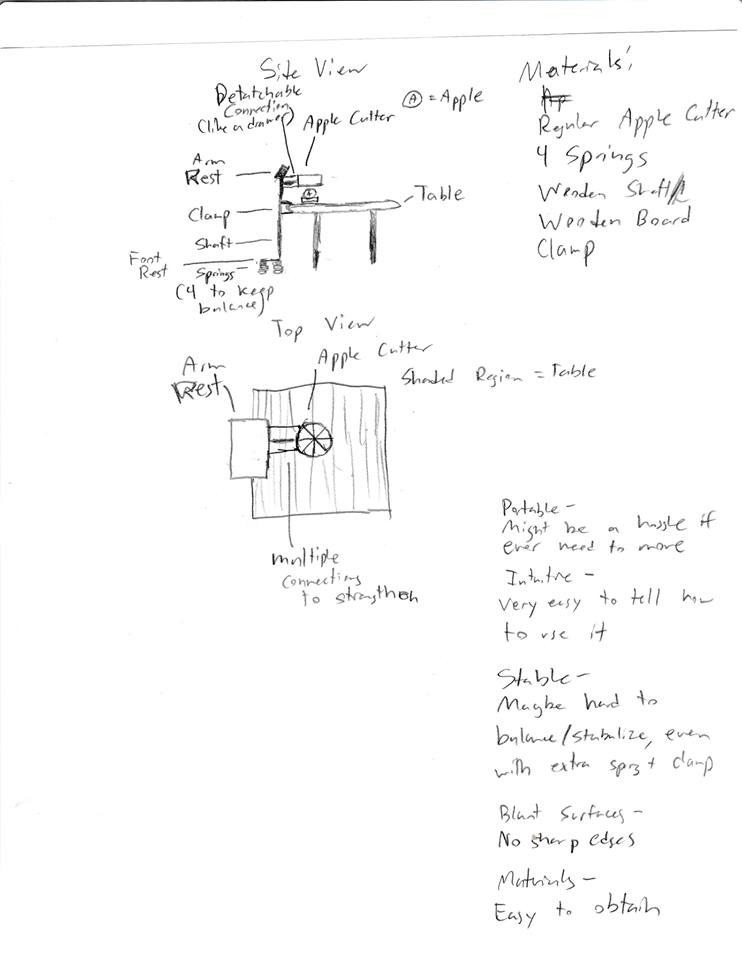 Side View
Detatchable
Connection
(like a drawer)
Apple Cutter
Ⓐ = Apple
Arm
Rest
Clamp
Table
Shaft
Foot
Rest
Springs
(4 to keep
balance)
Materials:
Regular Apple Cutter
4 Springs
Wooden Shaft
Wooden Board
Clamp
Top View
Apple Cutter
Arm
Rest
Shaded Region = Table
multiple
connections
to strengthen
Portable -
Might be a hassle if
ever need to move
Intuitive -
Very easy to tell how
to use it
Stable -
Maybe hard to
balance/stabalize, even
with extra + clamp
Blunt Surfaces -
No sharp edges
Materials -
Easy to obtain